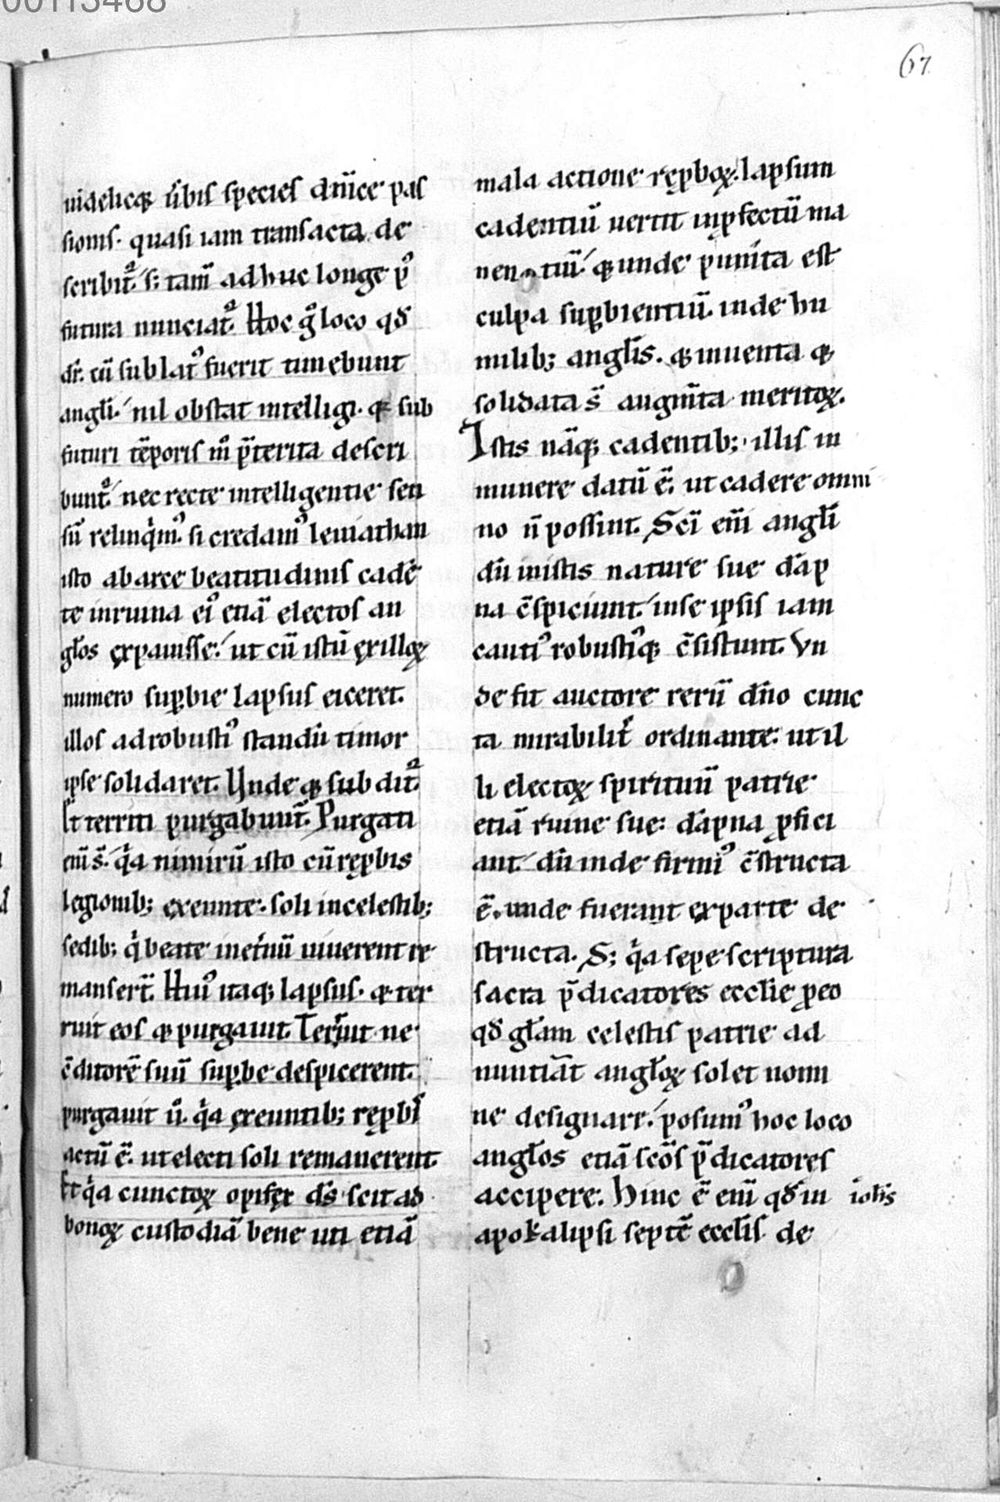 00113468
67
uidelicꝫ ũbis species dnīce pas
sionis. quasi iam transacta de
scribit᷑. s; tam̄ adhuc longe p᷒
futura nunciat᷑. Hoc gͦ loco qđ
dr̄. cū sublat᷒ fuerit timebunt
angli. nil obstat intelligi. qꝫ sub
futuri tēporis m̊ p̄terita descri
bunt᷑. nec recte intelligentie sen
sū relinqͥm᷒. si credam᷒ leuiathan
isto ab arce beatitudinis cadē
te in ruina ei᷒ etiā electos an
gl̄os expauisse. ut cū istū ex illoꝝ
numero supbie lapsus eiceret.
illos ad robusti᷒ standū timor
ipse solidaret. Unde qꝫ subdit᷑.
Et territi purgabunt᷑. Purgati
enī s̄. qͥa nimirū isto cū rep̱bis
legionib; exeunte. soli in celestib;
sedib; qͥ beate inet̄nū uiuerent re
manser̄t. Hui᷒ itaqꝫ lapsus. qꝫ ter
ruit eos qꝫ purgauit. Terruit ne
c̄ditorē suū sup̱be despicerent.
purgauit ũ. qͥa exeuntib; rep̱bis
actū ē. ut electi soli remanerent.
Et qͥa cunctoꝝ opifex ds̄ scit ad
bonoꝝ custodiā bene uti etiā
mala actione rep̱boꝝ. lapsum
cadentiū uertit in p̱fectū ma
nentiū. qꝫ unde punita est
culpa sup̱bientiū. inde hu
milib; angl̄is. qꝫ inuenta qꝫ
solidata s̄ augm̄ta meritoꝝ.
Istis nāqꝫ cadentib; illis in
munere datū ē. ut cadere omni
no n̄ possint. Sc̄i enī angl̄i
dū in istis nature sue dāp
na c̄spiciunt. in se ipsis iam
cauti᷒ robusti᷒qꝫ c̄sistunt. Vn
de fit auctore rerū dn̄o cunc
ta mirabilit̄ ordinante. ut il
li electoꝝ spirituū patrie
etiā ruine sue dāpna p̱fici
ant. dū inde firmi᷒ c̄structa
ē. unde fuerant ex parte de
structa. S; qͥa sepe scriptura
sacra p̄dicatores eccl̄ie p̱ eo
qđ gl̄am celestis patrie ad
nuntiāt angl̄oꝝ solet nomi
ne designare. possum᷒ hoc loco
angl̄os etiā sc̄os p̄dicatores
accipere. Hinc ē enī qđ in ioh̄is
apokalipsi septē eccl̄is de